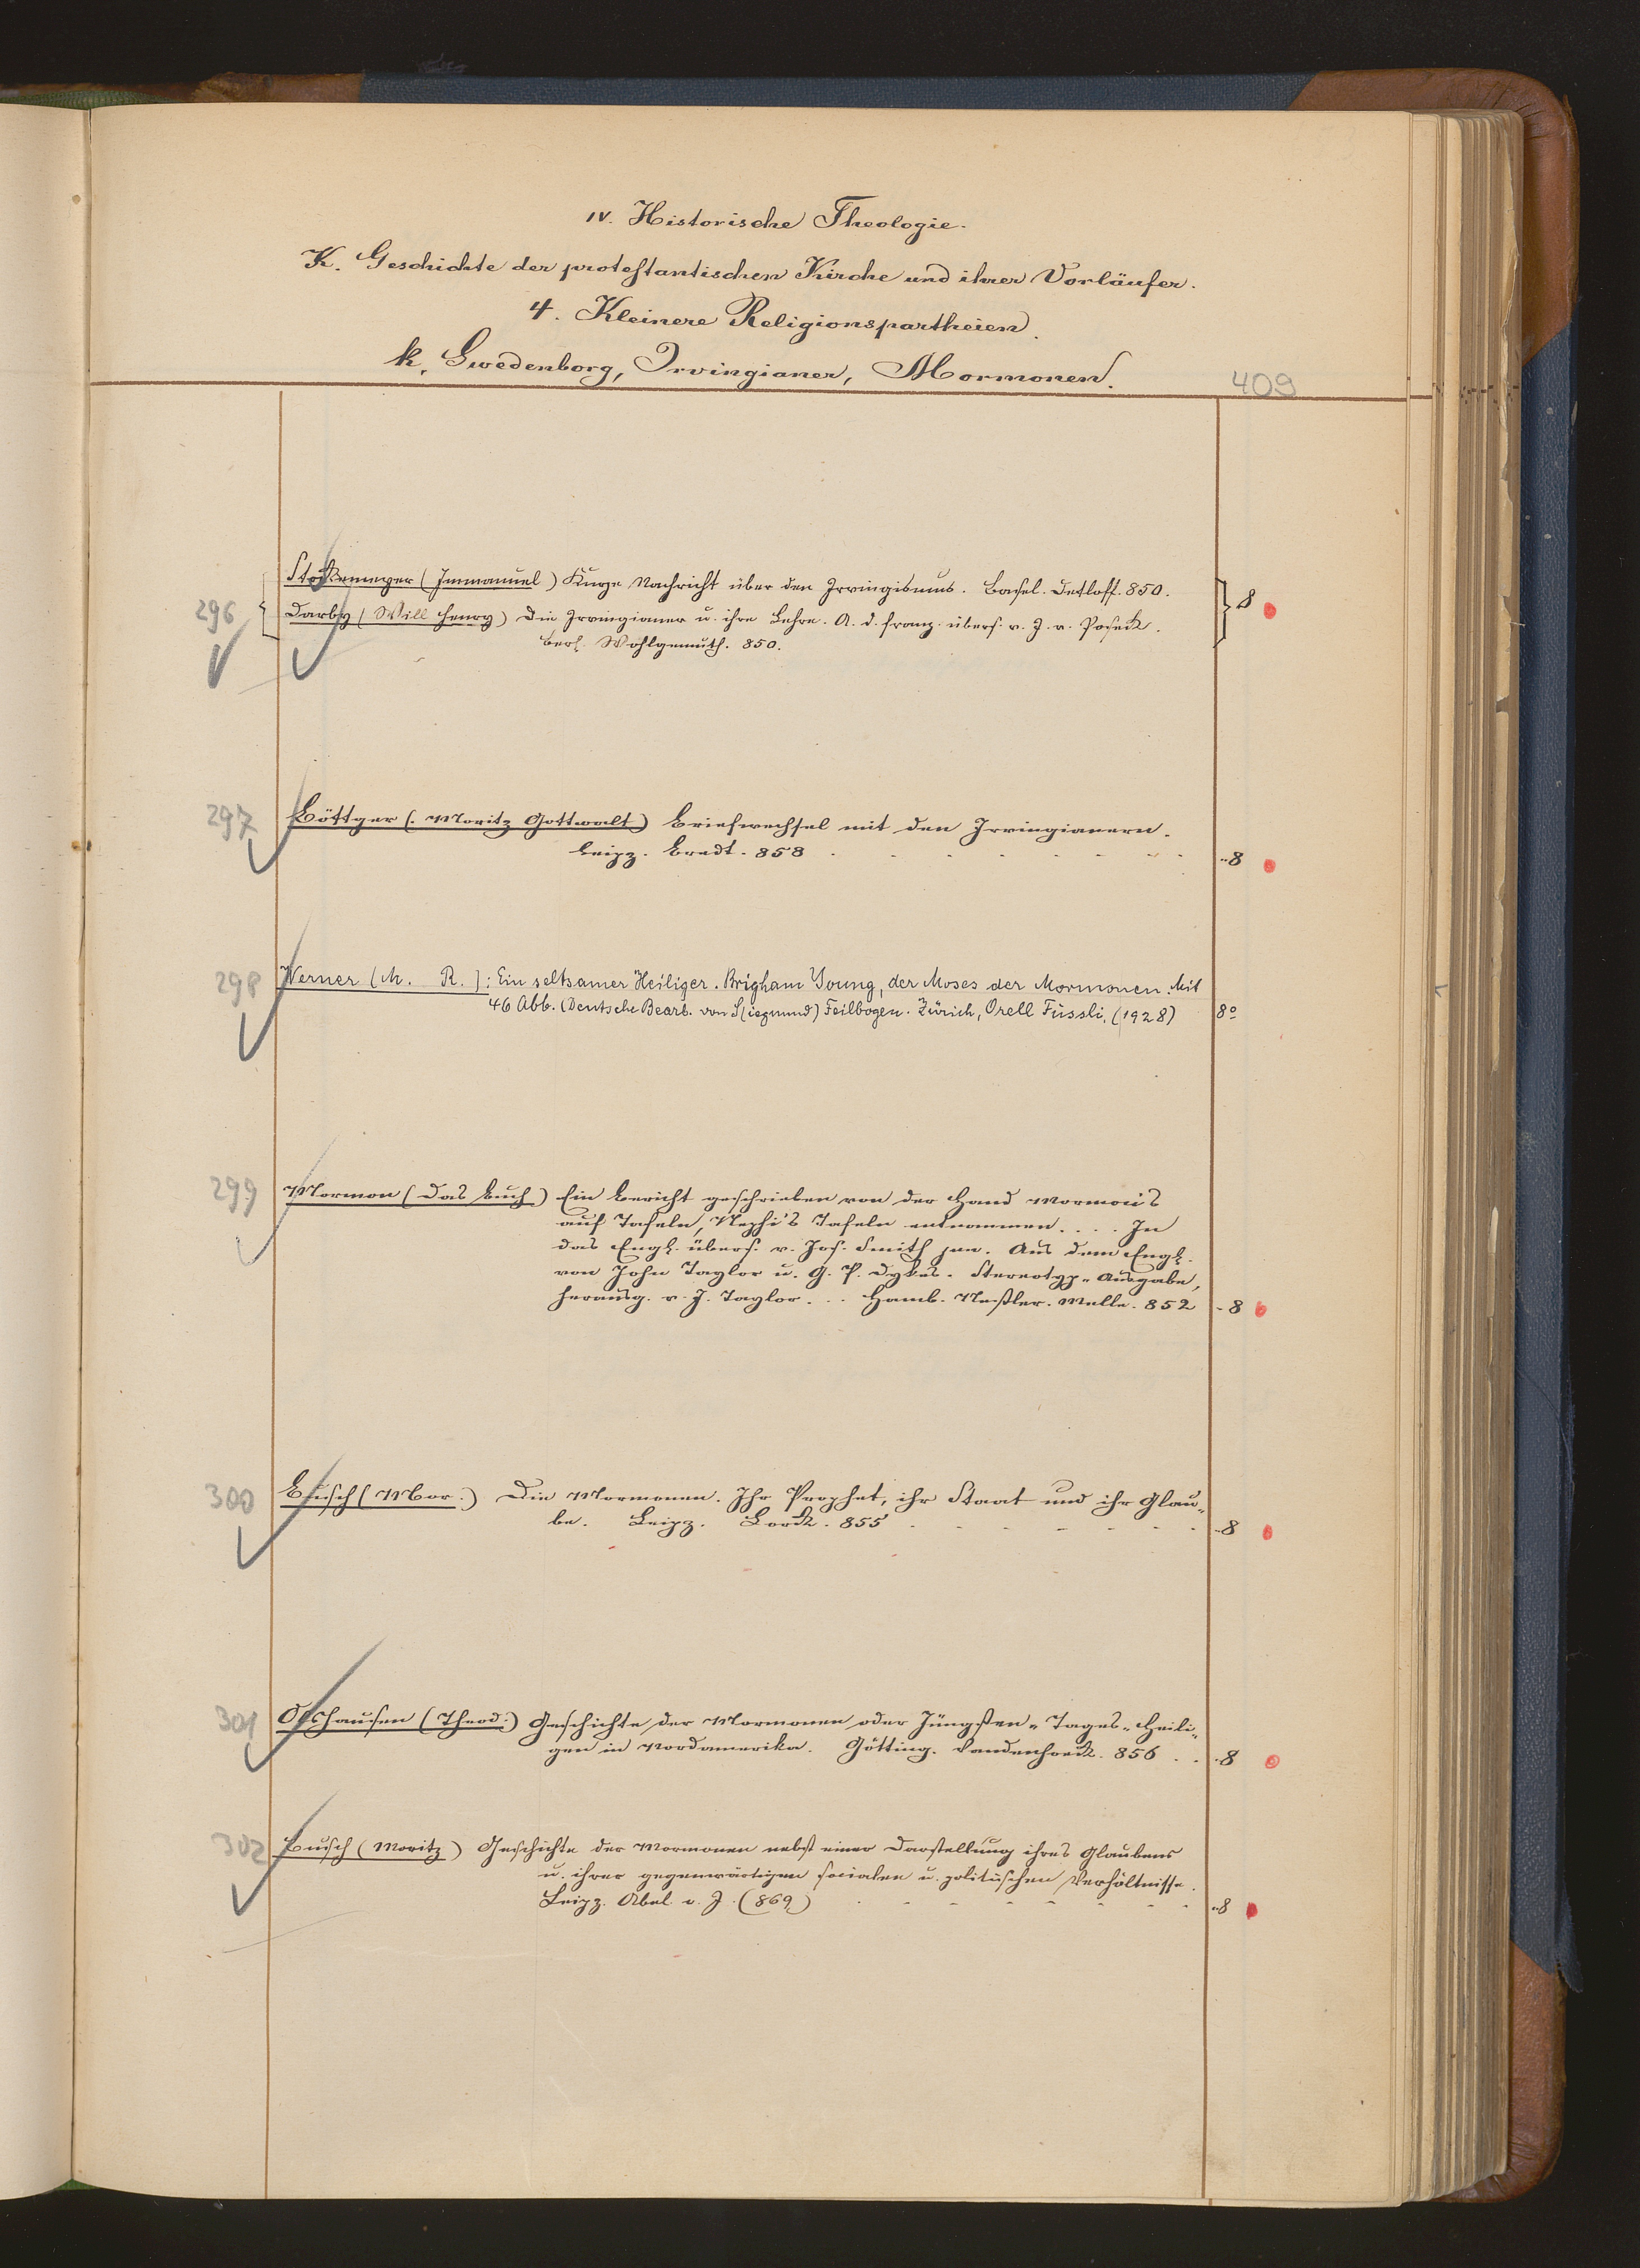 IV. Historische Theologie.
K. Geschichte der protestantischen Kirche und ihrer Vorläufer.
4. Kleinere Religionspartheien.
k, Swedenborg, Irvingianer, Mormonen.
409
296
Stockemeyer (Immanuel) Kurze Nachricht über den Irvingismus. Basel. Detloff. 850.
Darby (Will Henry) Die Irvingianer u. ihre Lehre. A. d. Franz. übers. v. J. v. Poseck.
Berl. Wohlgemuth. 850.
8
297
Böttger (Moritz Gottwalt) Briefwechsel mit den Irvingianern.
Leipz. Bredt. 858
8
298
Werner (M. R.): Ein seltsamer Heiliger. Brigham Young, der Moses der Mormonen. Mit
46 Abb. (Deutsche Bearb. von S(iegmund) Feilbogen. Zürich, Orell Füssli, (1928)
8º
299
Mormon (Das Buch) Ein Bericht geschrieben von der Hand Mormon's
auf Tafeln, Nephi's Tafeln entnommen. . . . In
das Engl. übers. v. Jos. Smith jun. Aus dem Engl.
von John Taylor u. G. P. Dykes. Stereotyp-Ausgabe,
herausg. v. J. Taylor. . . Hamb. Neßler. Melle. 852
8
300
Busch (Mor.) Die Mormonen. Ihr Prophet, ihr Staat und ihr Glau-
be. Leipz. Lorck. 855
8
301
Olshausen (Theod.) Geschichte der Mormonen oder Jüngsten-Tages-Heili-
gen in Nordamerika. Götting. Vandenhoeck. 856 . .
8
302
Busch (Moritz) Geschichte der Mormonen nebst einer Darstellung ihres Glaubens
u. ihrer gegenwärtigen socialen u. politischen Verhältnisse.
Leipz. Abel o. J. (869)
8